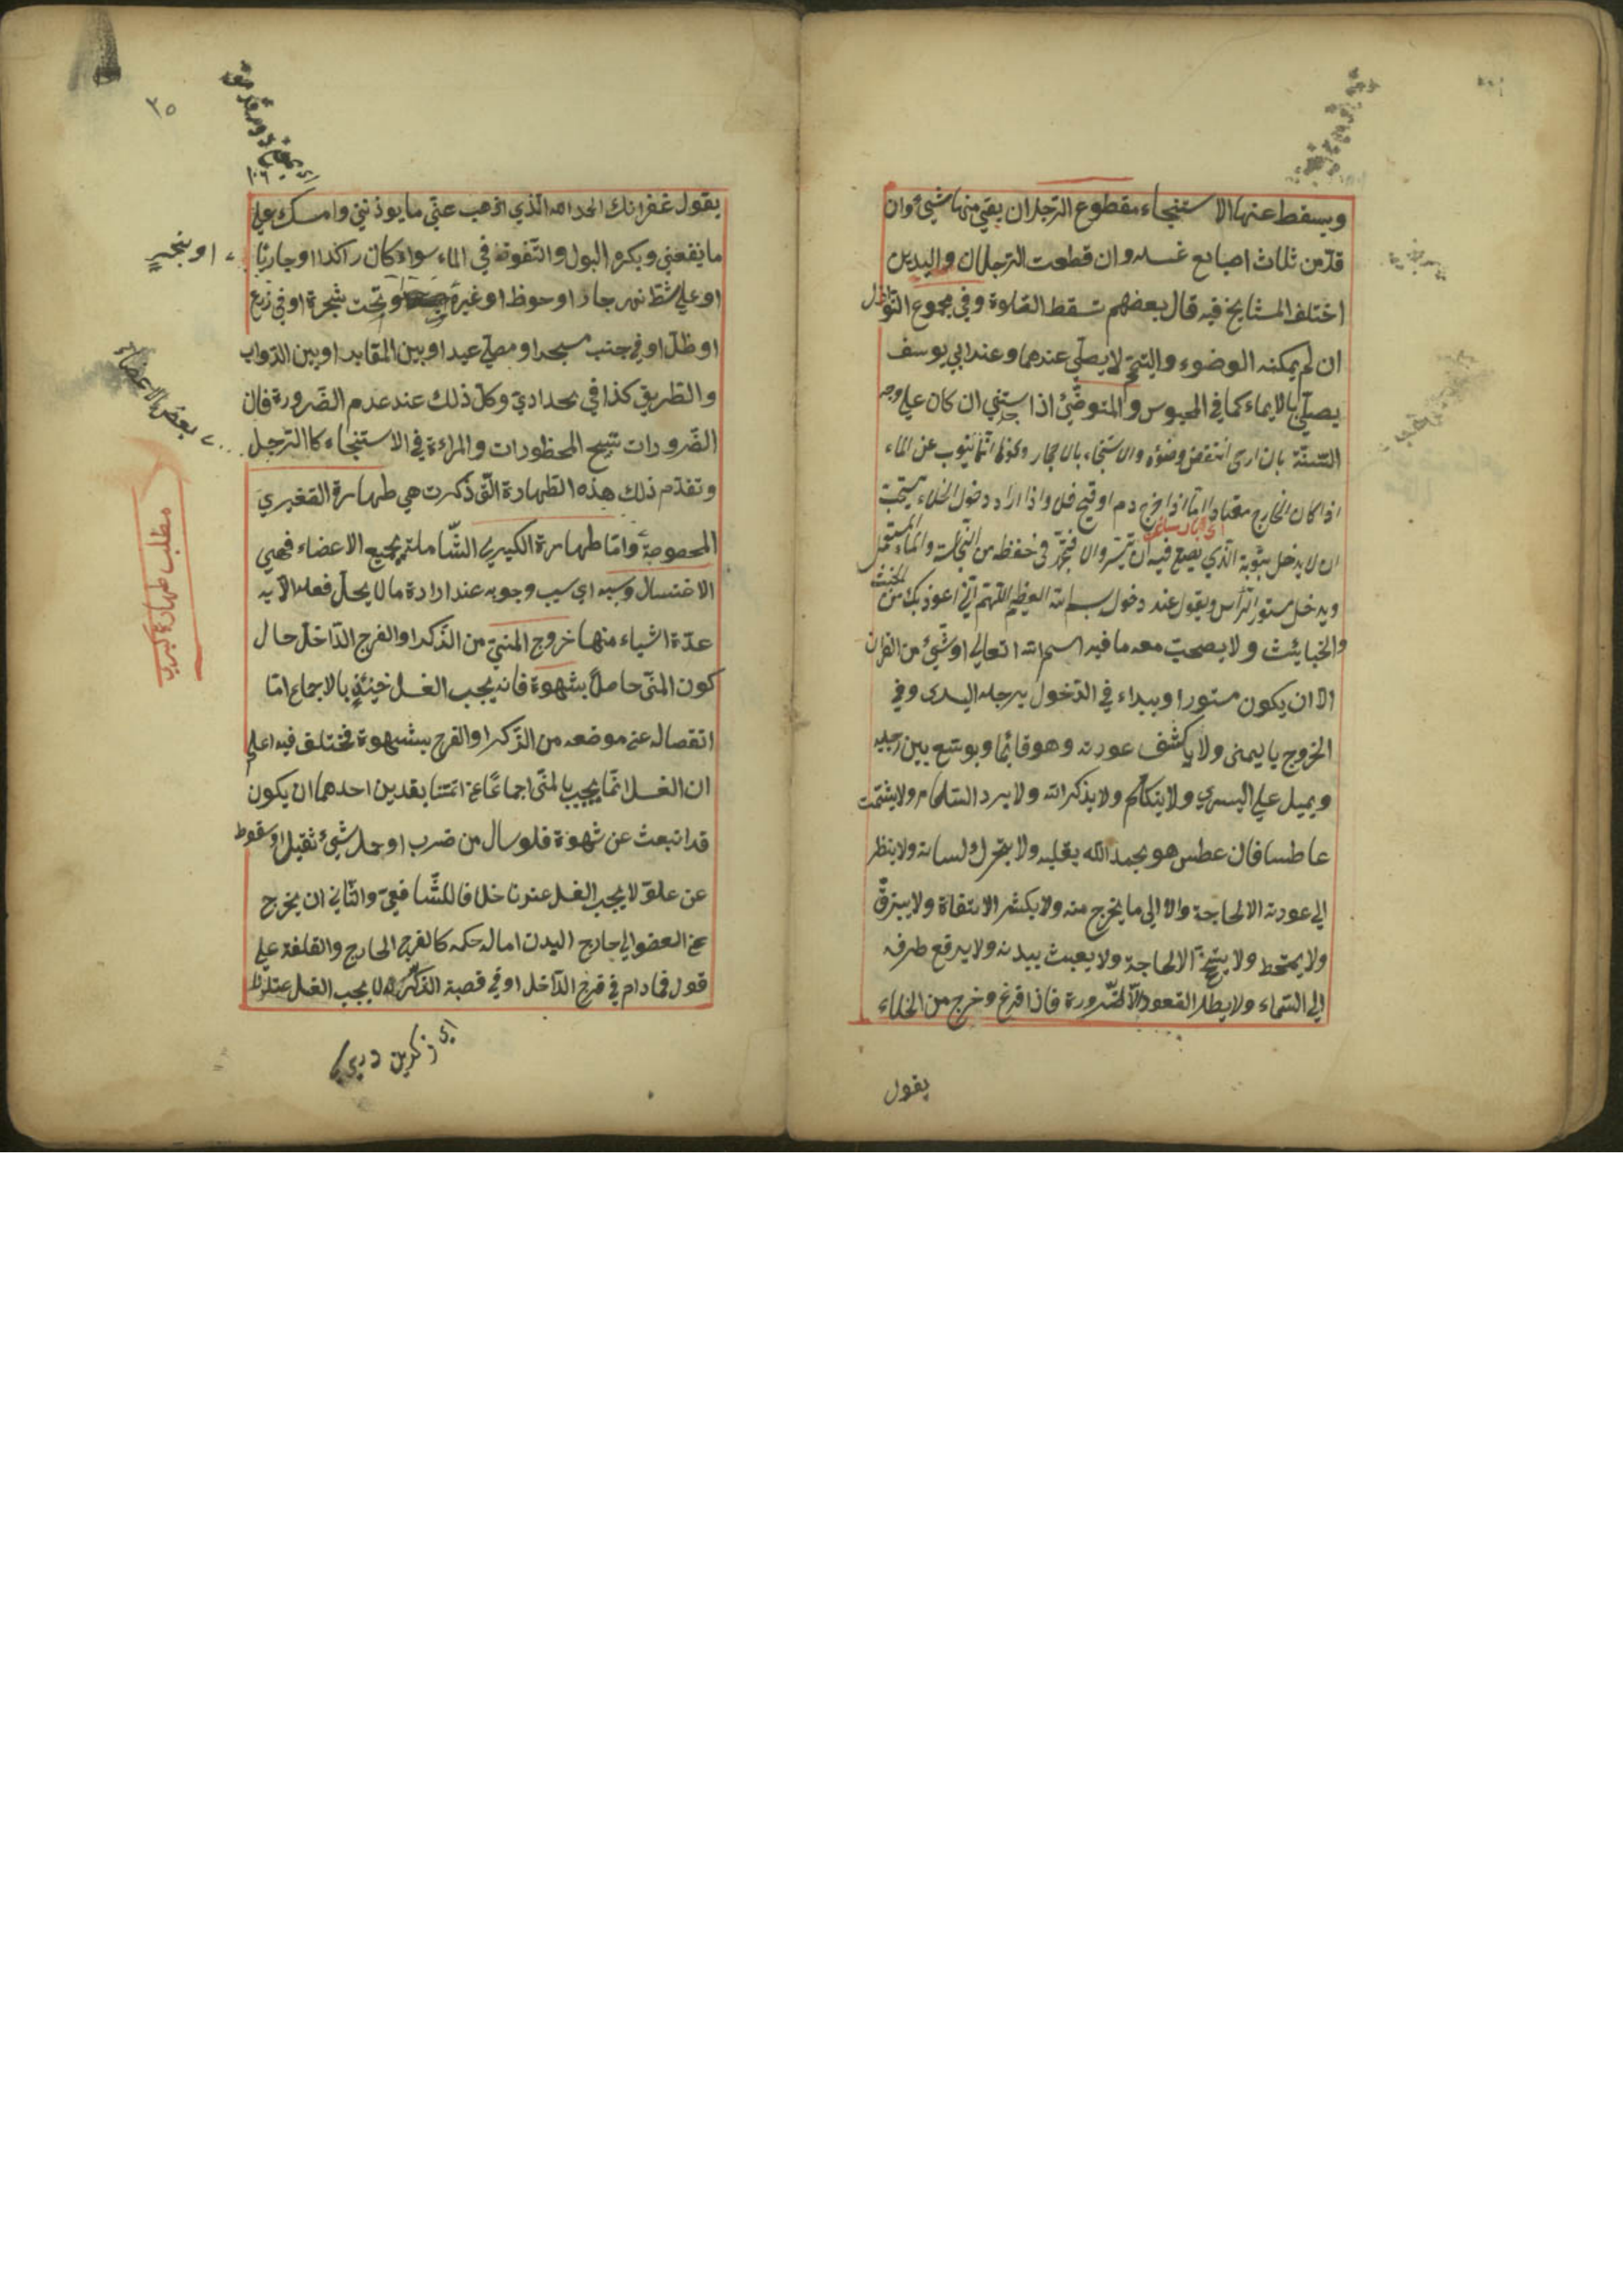 ويسقط عنها الاستنجاء مقطوع الرجل ان بقي منها شيئ وان
قدر من ثلاث اصابع غسله وان قطعت الرجلان واليدين
اختلف المشايخ فيه قال بعضهم تسقط الصلوة وفي مجموع النوازل
ان لم يمكنه الوضوء والتيمم لا يصلي عندهما وعند ابي يوسف
يصلي بالايماء كما في المحبوس والمتوضئ اذا استنجي ان كان علي وجه
السنة بان ارخى انتقض وضؤه والاستنجاء بالاحجار ونحوها انما ينوب عن الماء
اذا كان الخارج معتادا اما اذا خرج دم او قيح فلا واذا اراد دخول الخلاء يستحب
ان لا يدخل بثوبه الذي يصلي فيه ان تيسر والا فيتحرز في حفظه من النجاسة والماء المستعمل
ويدخل مستور الرأس ويقول عند دخول بسم الله العظيم اللهم اني اعوذ بك من الخبث
والخبايئث ولا يصحب معه ما فيه اسم الله تعالي او شيئ من القران
الا ان يكون مستورا ويبداء في الدخول برجله اليسرى وفي
الخروج باليمنى ولا يكشف عورته وهو قائما ويوسع بين رجليه
ويميل علي اليسري ولا يتكلم ولا يذكر الله ولا يرد السلام ولا يشمت
عاطسا فان عطس هو يحمد الله بقلبه ولا يحرك لسانه ولا ينظر
الي عورته الا لحاجة ولا الي ما يخرج منه ولا يكثر الالتفاة ولا يبزق
ولا يمتخط ولا يتنحنح الا لحاجة ولا يعبث ببدنه ولا يرفع طرفه
الي السماء ولا يطل القعود الا لضرورة فاذا فرغ وخرج من الخلاء
يقول
٢٥
يقول غفرانك الحمد لله الذي اذهب عني ما يوذنني وامسك علي
ما ينفعني ويكره البول والتغوط في الماء سواء كان راكدا او جاريا
او علي شط نهر جار او حوظ او غيره او تحت شجرة او في زرع
او ظل او في جنب مسجد او مصلي عيد او بين المقابر او بين الدواب
والطريق كذا في حدادي وكل ذلك عند عدم الضرورة فان
الضرورات تبيح المحظورات والمراءة في الاستنجاء كالرجل
وتقدم ذلك هذه الطهارة التي ذكرت هي طهارة الصغيري
المخصوصة واما طهارة الكبيري الشاملة بجميع الاعضاء فهي
الاغتسال وسببه اي سبب وجوبه عند ارادة ما لا يحل فعله الا به
عدة اشياء منها خروج المني من الذكر او الفرج الداخل حال
كون المني حاصلا بشهوة فانه يجب الغسل حينئذ بالاجماع اما
انفصاله عن موضعه من الذكر او الفرج بشهوة فمختلف فيه اعلم
ان الغسل انما يجب بالمني اجماعا عن ائمتنا بقدين احدهما ان يكون
قد انبعث عن شهوة فلو سال من ضرب او حمل شيئ ثقيل او سقوط
عن علو لا يجب الغسل عندنا خلافا للشافعي والثاني ان يخرج
عن العضو الي خارج البدن اما له حكمه كالفرج الخارج والقلفة علي
قول فما دام في فرج الداخل او في قصبة الذكر لا يجب الغسل عندنا
او بنجير
بعض الاعضاء
مطلب طهارة كبري